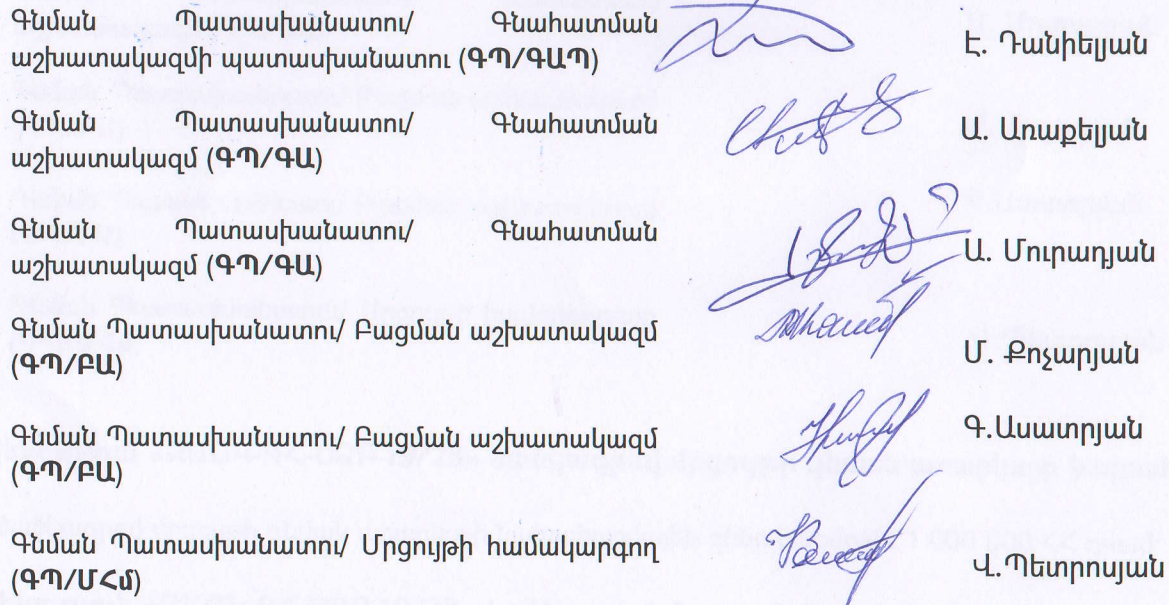 Գնման Պատասխանատու/ Գնահատման
աշխատակազմի պատասխանատու (ԳՊ/ԳԱՊ)
Է. Դանիելյան
Գնման Պատասխանատու/ Գնահատման
աշխատակազմ (ԳՊ/ԳԱ)
Ա. Առաքելյան
Գնման Պատասխանատու/ Գնահատման
աշխատակազմ (ԳՊ/ԳԱ)
Ա. Մուրադյան
Գնման Պատասխանատու/ Բացման աշխատակազմ
(ԳՊ/ԲԱ)
Մ. Քոչարյան
Գնման Պատասխանատու/ Բացման աշխատակազմ
(ԳՊ/ԲԱ)
Գ.Ասատրյան
Գնման Պատասխանատու/ Մրցույթի համակարգող
(ԳՊ/ՄՀմ)
Վ.Պետրոսյան